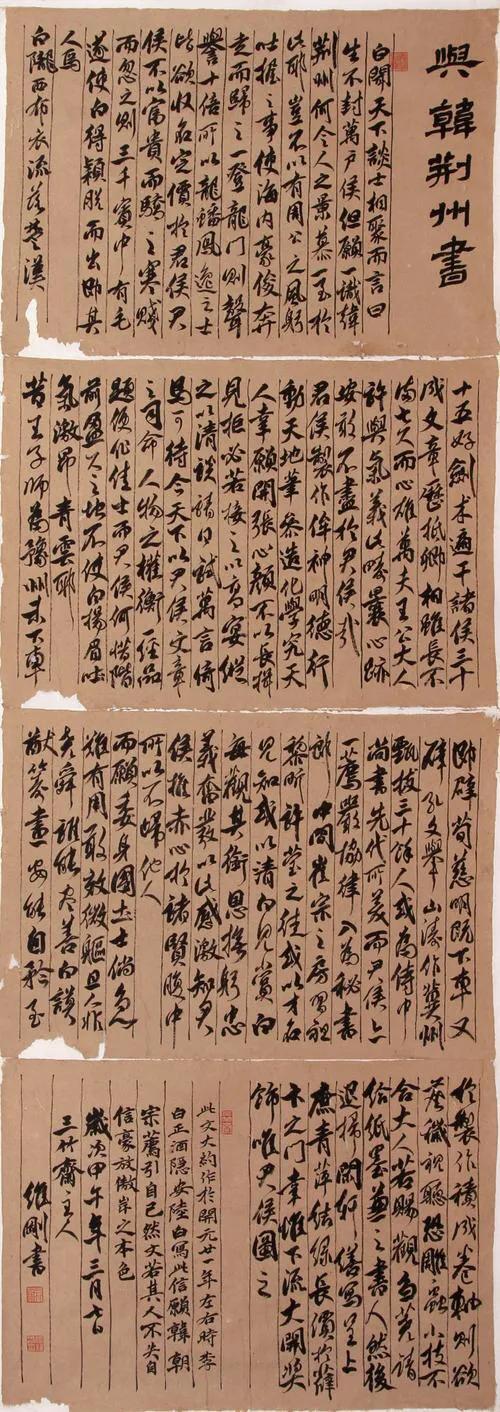 與韓荆州書
白聞天下談士相聚而言曰
生不封萬戶侯但願一識韓
荆州何令人之景慕一至於
此耶豈不以有周公之風躬
吐握之事使海内豪俊奔
走而歸之一登龍門則聲
譽十倍所以龍蟠鳳逸之士
皆欲收名定價於君侯君
侯不以富貴而驕之寒賤
而忽之則三千賓中有毛
遂使白得穎脱而出即其
人焉
白隴西布衣流落楚漢
十五好劍术遍干諸侯三十
成文章歷抵卿相雖長不
滿七尺而心雄萬夫王公大人
許與氣義此疇曩心跡
安敢不盡於君侯哉
君侯製作侔神明德行
動天地筆參造化學究天
人幸願開張心顏不以長揖
見拒必若接之以高宴縱
之以清談請日試萬言倚
馬可待今天下以君侯文章
之司命人物之權衡一經品
題便作佳士而君侯何惜階
前盈尺之地不使白揚眉吐
氣激昂青雲耶
昔王子師為豫州未下車
即辟荀慈明既下車又
辟孔文舉山濤作冀州
甄拔三十餘人或為侍中
尚書先代所美而君侯亦
一薦嚴協律入為秘書
郎 中間崔宗之房習祖
黎昕許瑩之徒或以才名
見知或以清白見賞白
每觀其銜恩撫躬忠
義奮發以此感激知君
侯推赤心於諸賢腹中
所以不歸他人
而願委身國士倘急
難有用敢效微軀且人非
堯舜誰能盡善白謨
猷籌畫安能自矜至
於製作積成卷軸則欲
塵穢視聽恐雕蟲小技不
合大人若賜觀芻蕘請
給紙墨兼之書人然後
退掃閑軒繕寫呈上
庶青萍結緑長價於薛
卞之門幸惟下流大開獎
飾唯君侯圖之
此文大約作於開元廿一年左右時李
白正酒隱安陸白寫此信願韓朝
宗薦引自己然文若其人不失自
信豪放傲岸之本色
歲次甲午年三月七日
三竹齋主人
維剛書